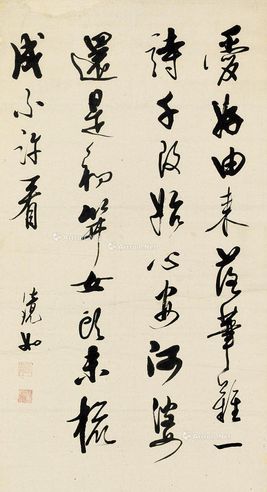 愛好由來落筆難一
詩千改始心安阿婆
還是初笄女頭未梳
成不許看